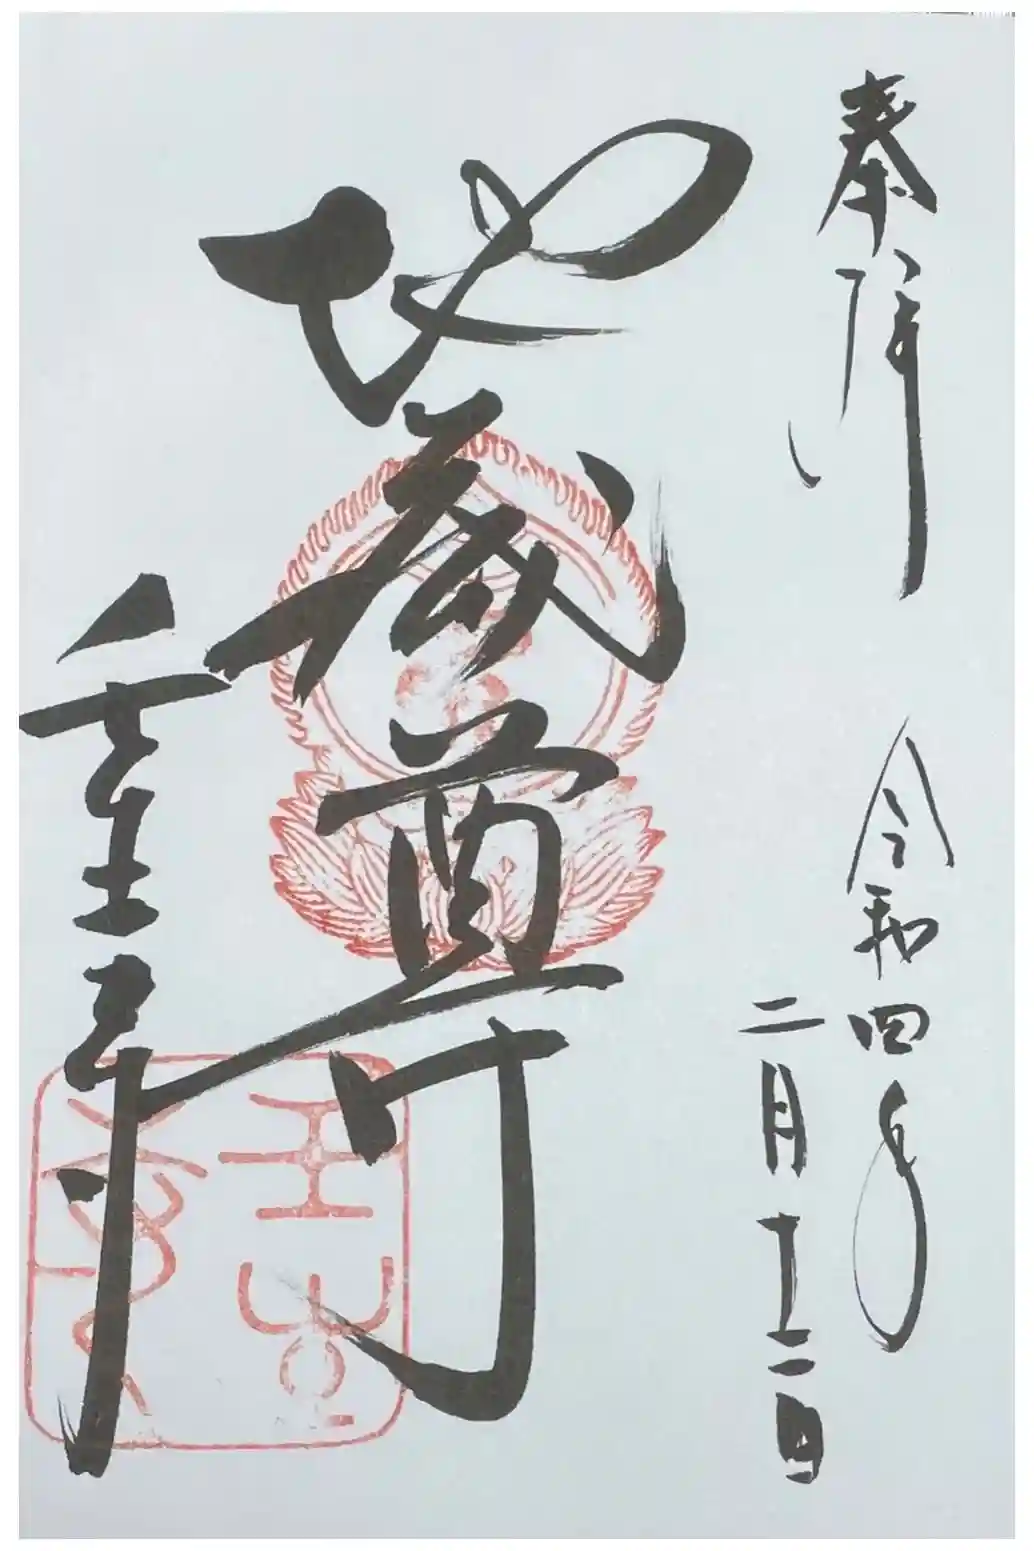 奉拝
令和四年
二月十二日
地蔵尊
壬生寺